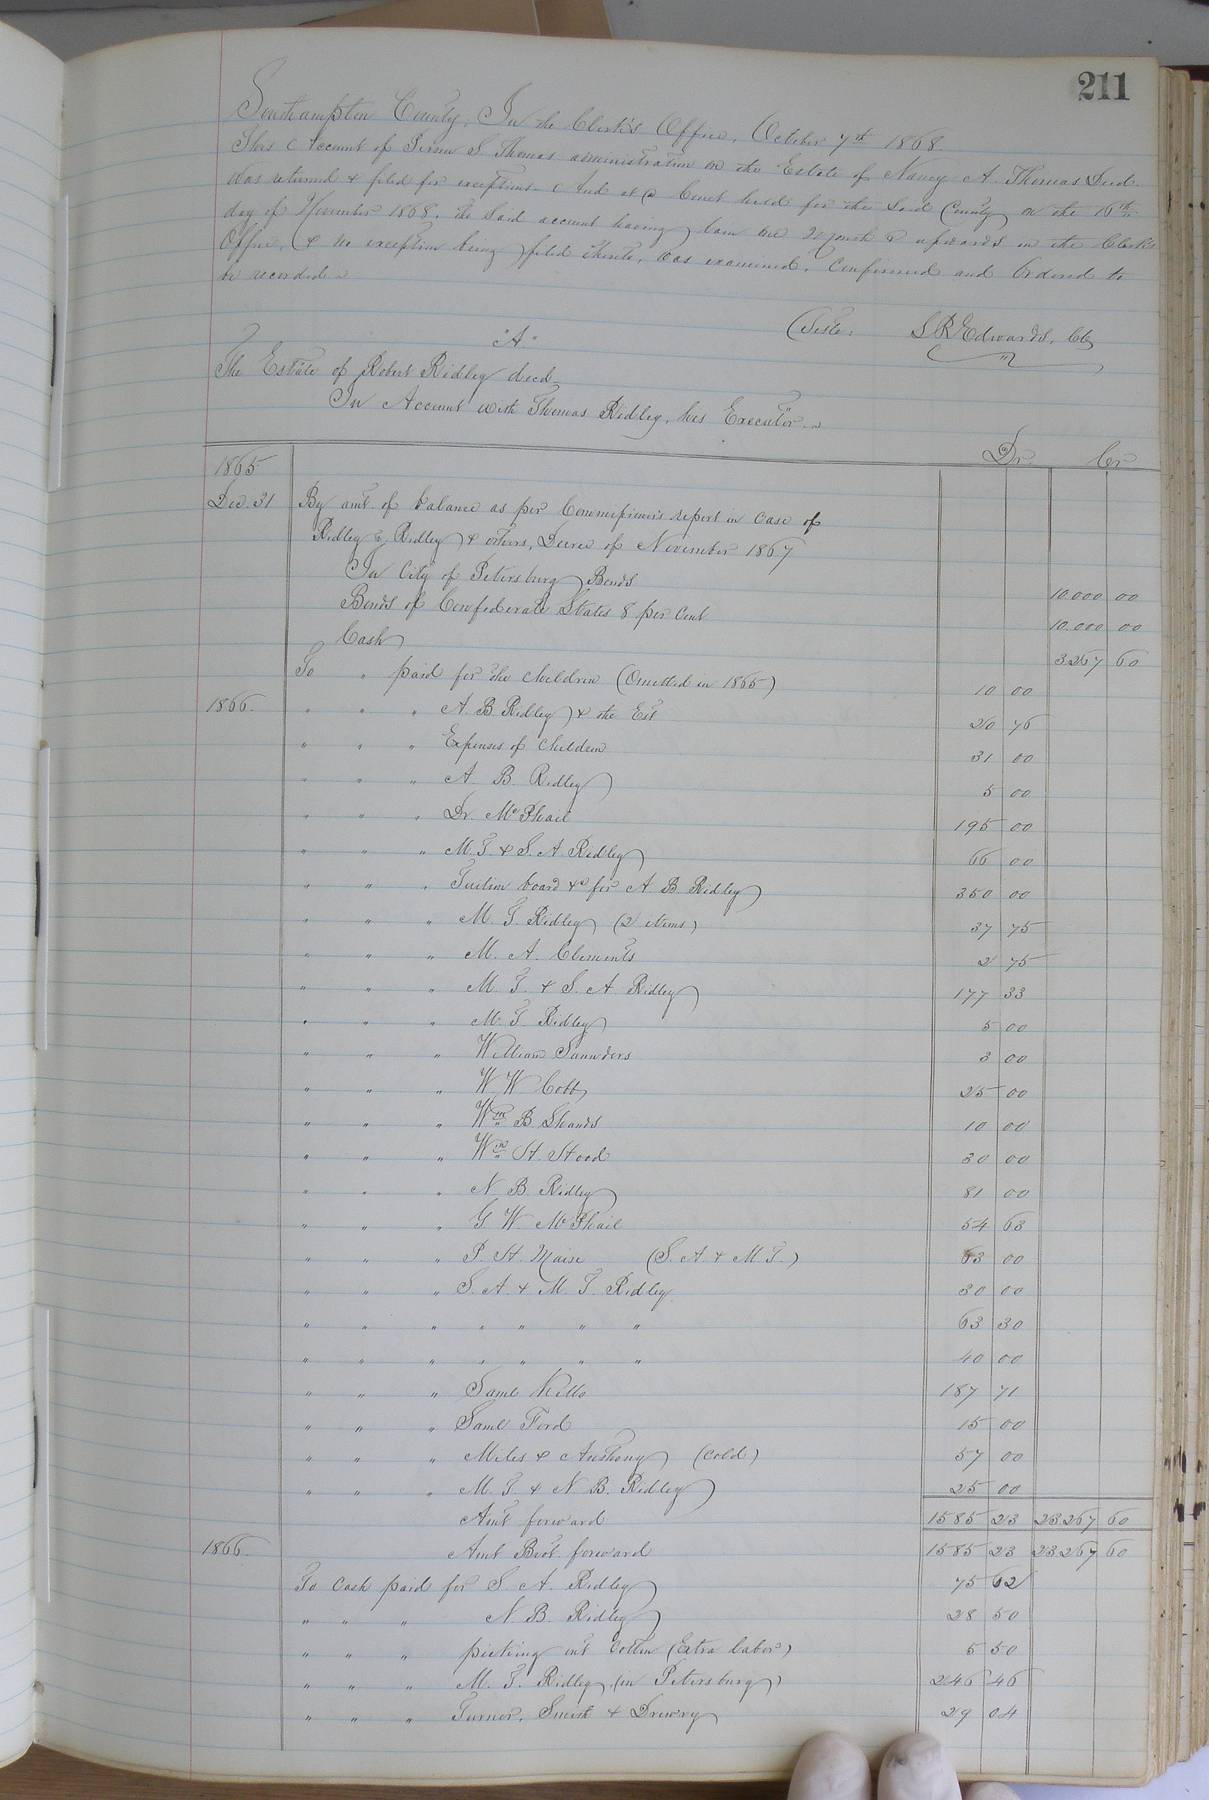 211
Southampton County, In the Clerk's Office, October 7th 1868.
This Account of S Thomas administration on the Estate of Nancy A. Thomas Decd.
was returned & filed for exceptions. And at a Court held for the said County on the 16th
day of November 1868. the said account having lain one Month & upwards in the Clerk's
Office, & no exception being filed thereto, was examined, Confirmed and Ordered to
be recorded.
Teste: L R Edwards, Clk
"A"
The Estate of Robert Ridley decd.
In Account with Thomas Ridley, his Executor.
Dr. Cr
1865
Dec. 31 By amt. of balance as per Commissioner's report in case of
Ridley vs Ridley & others, Decree of November 1867
In City of Petersburg Bonds 10.000 00
Bonds of Confederate States 8 per cent 10.000 00
Cash 3267 60
To " paid for the children (Omitted in 1865) 10 00
1866. " " " A. B. Ridley & the Est 20 76
" " " Expenses of children 31 00
" " " A. B Ridley 5 00
" " " Dr. McPhail 195 00
" " " M. T. & S. A Ridley 66 00
" " " Tuition board &c for A B. Ridley 350 00
" " " M. T. Ridley (2 items) 37 75
" " " M. A. Clements 2 75
" " " M. T. & S. A Ridley 177 33
" " " M. T Ridley 5 00
" " " William Saunders 3 00
" " " W. W Cobb 25 00
" " " Wm B. Shands 10 00
" " " Wm H. Hood 30 00
" " " N. B. Ridley 81 00
" " " G W McPhail 54 63
" " " P. H. (S. A. & M. T.) 63 00
" " " S. A. & M. T. Ridley. 30 00
" " " " " " " 63 30
" " " " " " " 40 00
" " " Saml Kello 187 71
" " " Saml Ford 15 00
" " " Miles & Anthony (Cold) 57 00
" " " M. T. & N. B. Ridley 25 00
Amt forward 1585 23 23267 60
1866. Amt Brot. forward 1585 23 23267 60
To Cash paid for S. A. Ridley 75 62
" " " N B. Ridley 28 50
" " " picking out Cotton (Extra labor) 5 50
" " " M. T. Ridley (in Petersburg) 246 46
" " " Turner, Smith & Drewry 29 04